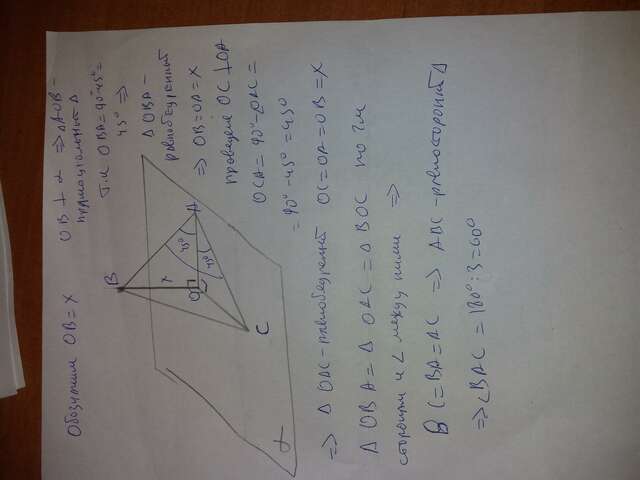 Обозначим OB = X
OB ⊥ α ⇒ ΔAOB -
прямоугольный Δ
т.к OBA = 90° - 45° =
45° ⇒
Δ OBA -
равнобедренный
⇒ OB = OA = X
проведём OC ⊥ OA
OCA = 90° - OAC =
= 90° - 45° = 45°
B
A
O
C
45°
45°
α
⇒ Δ OAC - равнобедренный OC = OA = OB = X
Δ OBA = Δ OAC = Δ BOC по 2м
сторонам и < между ними ⇒
BC = BA = AC ⇒ ABC - равносторонний Δ
⇒ <BAC = 180° : 3 = 60°